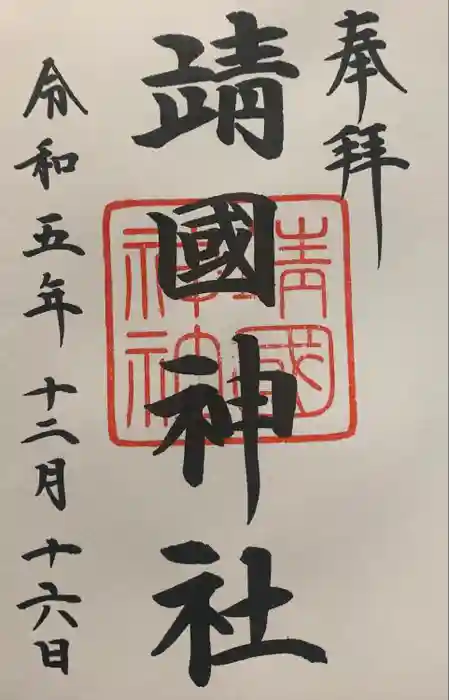 奉拝
靖國神社
靖國
神社
令和五年十二月十六日